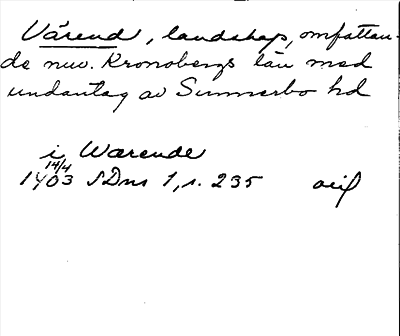 Värend, landskap, omfattan-
de nuv. Kronobergs län med
undantag av Sunnerbo hd
i Wærende
14/4
1403 SDns 1, s. 235 avif